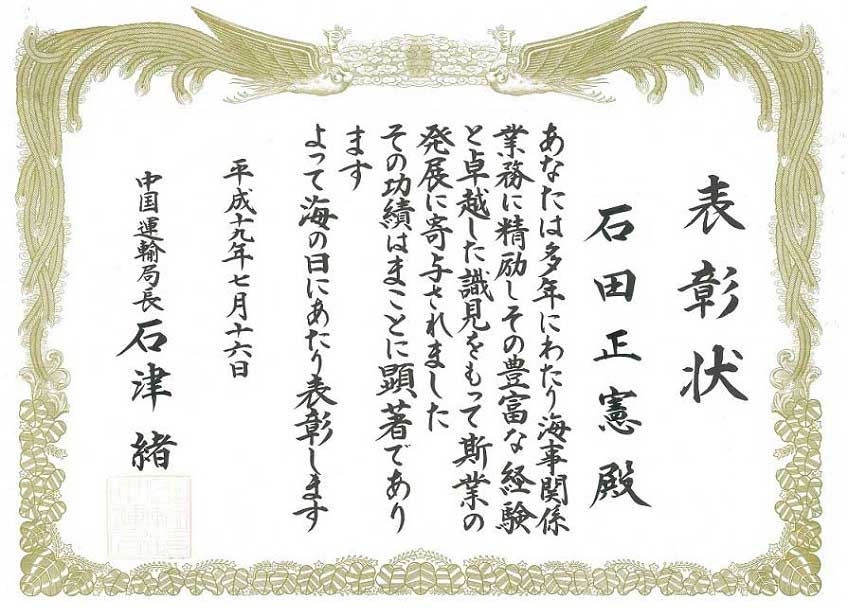 表彰状
石田正憲殿
あなたは多年にわたり海事関係
業務に精励しその豊富な経験
と卓越した識見をもって斯業の
発展に寄与されました
その功績はまことに顕著であり
ます
よって海の日にあたり表彰します
平成十九年七月十六日
中国運輸局長 石津緒